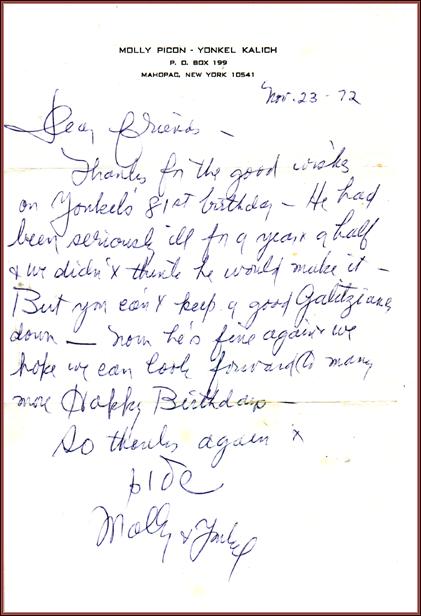 MOLLY PICON - YONKEL KALICH
P. O. BOX 199
MAHOPAC, NEW YORK 10541
Nov. 23 - 72
Dear Friends -
Thanks for the good wishes
on Yonkel's 81st birthday - He had
been seriously ill for a year & a half
& we didn't think he would make it -
But you can't keep a good Galitzianer
down - now he's fine again & we
hope we can look forward to many
more Happy Birthdays -
So thanks again &
שלום
Molly & Yonkel